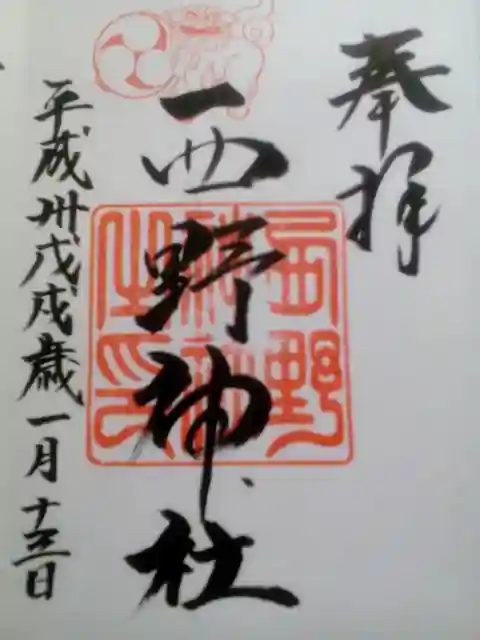 奉拝
西野神社
西野
神社
之印
平成卅戊戌歳一月十三日